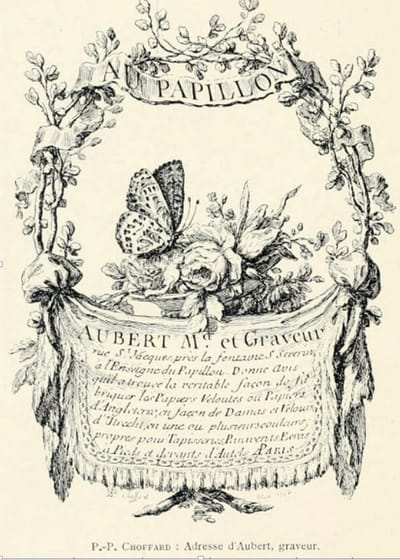 AU PAPILLON
AUBERT Md et Graveur
rue St Jacques près la fontaine S. Severin,
à l'Enseigne du Papillon. Donne Avis
qu'il a trouvé la veritable façon de fa-
briquer les Papiers Veloutés ou Papiers
d'Angleterre, en façon de Damas et Velours
d'Utrecht, en une ou plusieurs couleurs,
propres pour Tapisseries, Paravents, Ecrans
a Pieds et devants d'Autels A PARIS
P.-P. CHOFFARD : Adresse d'Aubert, graveur.